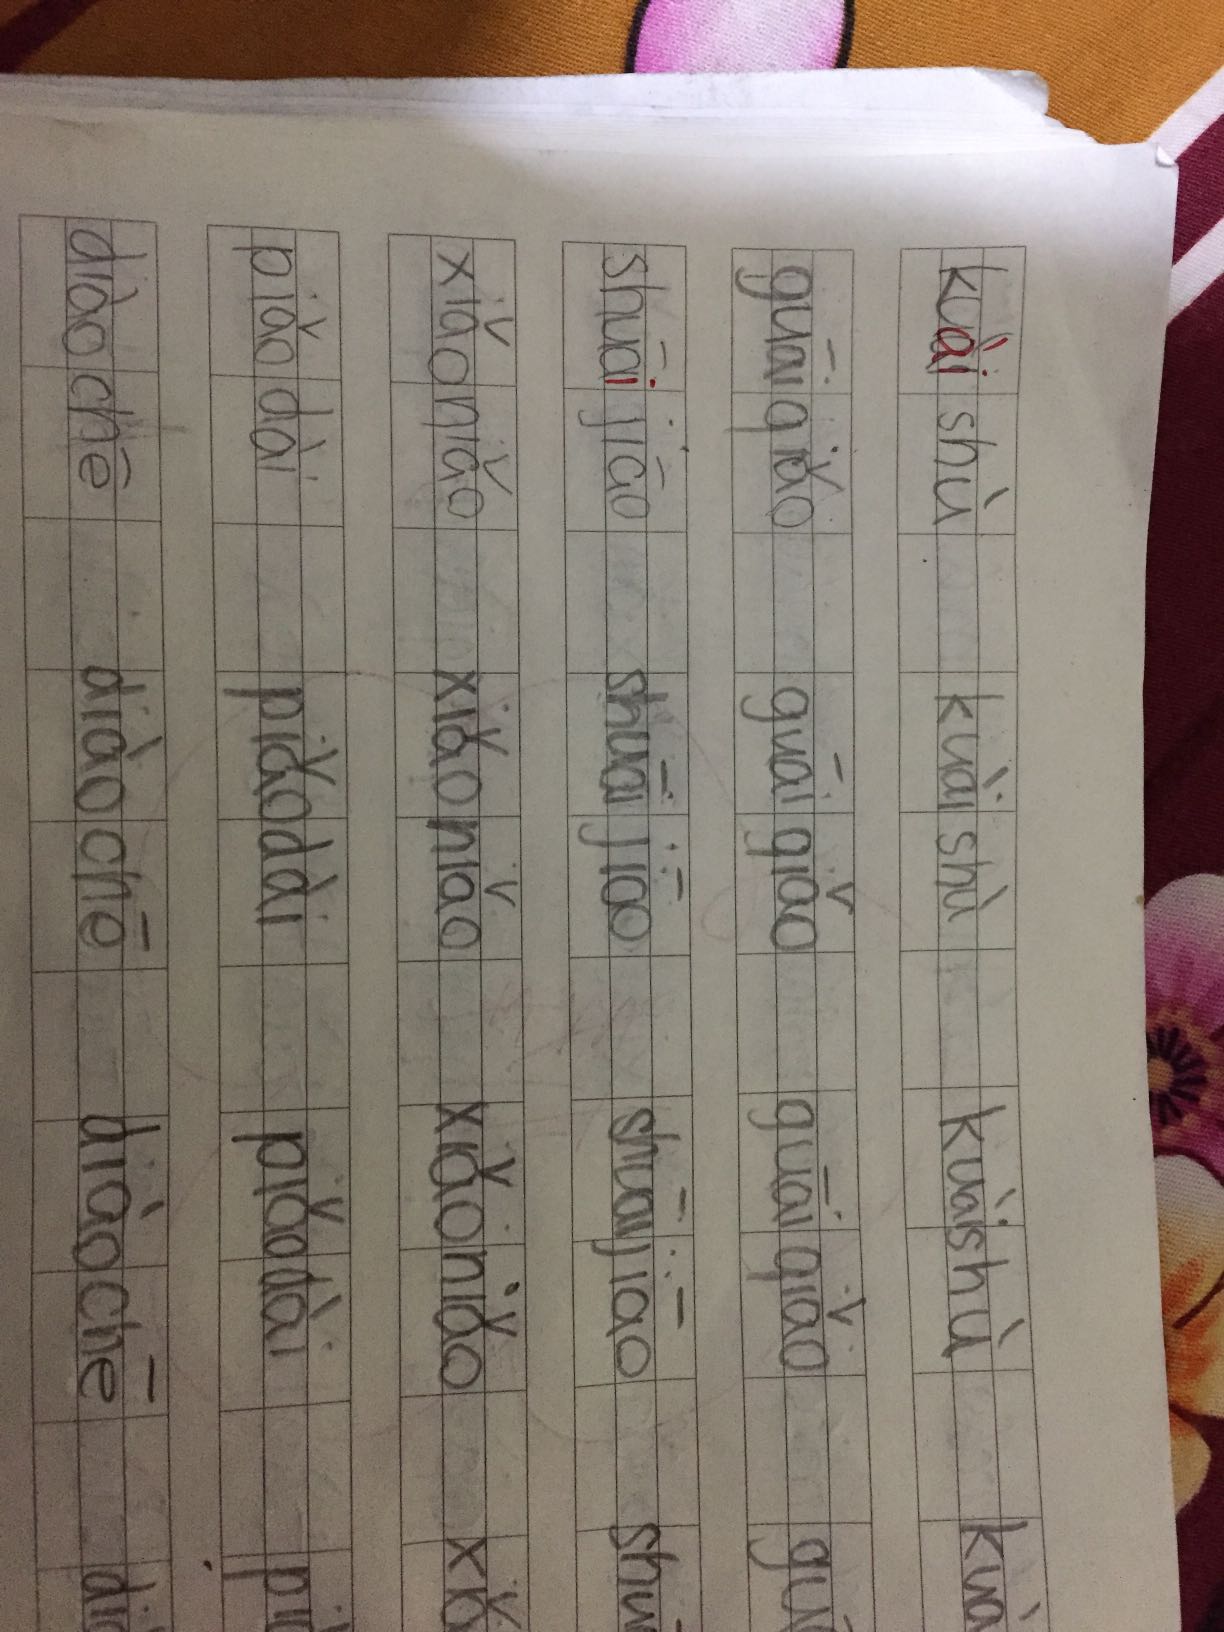 kuài shù kuài shù kuài shù kuà
guāi qiǎo guāi qiǎo guāi qiǎo gu
shuāi jiāo shuāi jiāo shuāi jiāo shu
xiǎo niǎo xiǎo niǎo xiǎo niǎo xiǎ
piǎo dài piǎo dài piǎo dài pi
diào chē diào chē diào chē di